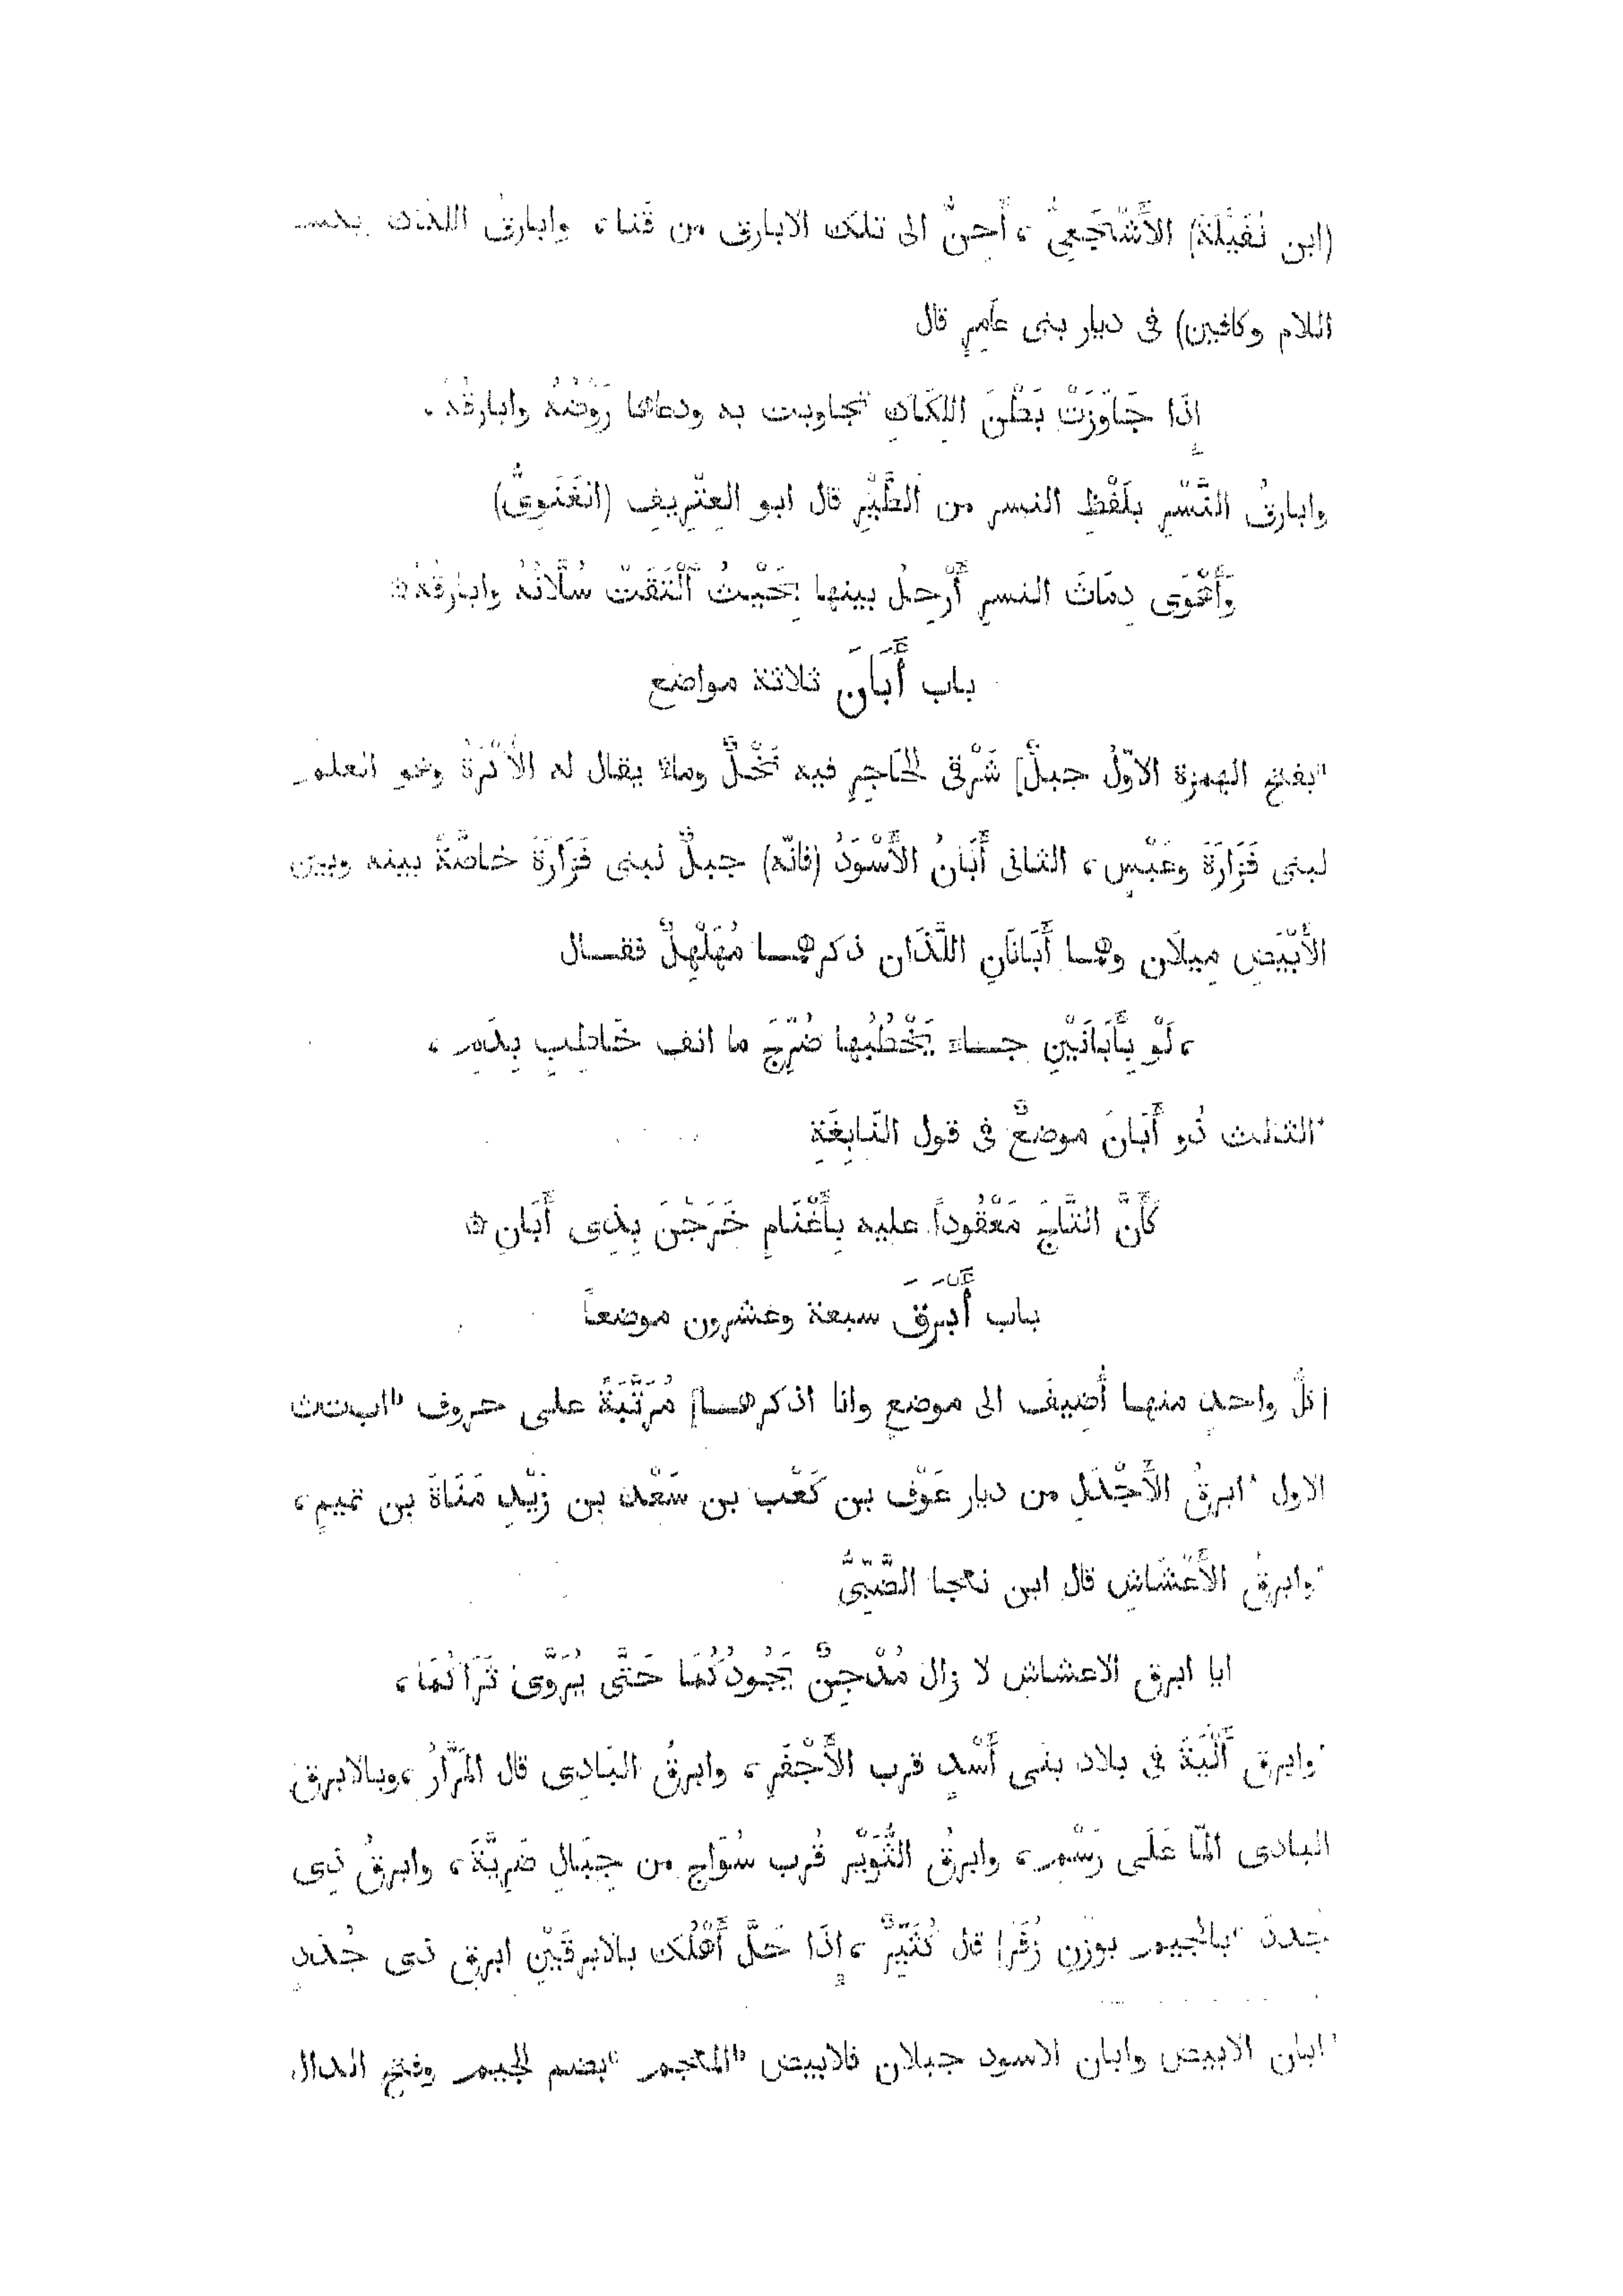 (ابن نُفَيْلَة) الأَشْجَعِىُّ ، أَحِنُّ الى تلك الابارق من قَنا، وابارقُ اللكاك بكسر
اللام وكافين) فى ديار بنى عَامِرٍ قال
إِذَا جَاوَزَتْ بَطْنَ اللِكَاكِ تجاوبت به ودعاها رَوْضُهُ وابارِقُهْ ،
وابارقُ النَّسْرِ بلَفْظِ النسر من الطَّيْرِ قال ابو العِتْرِيفِ (الغَنَوِىُّ)
وَأَهْوَى دِمَاثَ النسرِ أَرْحِلُ بينها بِحَيْثُ ٱلْتَقَتْ سُلَّانُهُ وابارِقُهْ ۞
باب أَبَانَ ثلاثة مواضع
"بفتح الهمزة الاوّلُ جبلٌ] شَرْقى الحَاجِرِ فيه نَخْلٌ وماءٌ يقال له الأَكْرَةُ وهو العلم
لبنى فَزَارَةَ وعَبْسٍ، الثانى أَبَانُ الأَسْوَدُ (فانّه) جبلٌ لبنى فَزَارَةَ خاصَّةً بينه وبين
الأَبْيَضِ مِيلَانِ وهما أَبَانَانِ اللَّذَانِ ذكرهما مُهَلْهِلٌ فقال
، لَوْ بِأَبَانَيْنِ جاء يَخْطُبُها ضُرِّجَ ما انف خَاطِبٍ بِدَمِ ،
"الثالث ذُو أَبَانَ موضعٌ فى قول النَّابِغَةِ
كَأَنَّ التَّاجَ مَعْقُوداً عليه بِأَغْنَامٍ خَرَجْنَ بِذِى أَبَانِ ۞
باب أَبْرَقَ سبعة وعشرون موضعاً
[كلُّ واحدٍ منها أُضِيفَ الى موضعٍ وانا اذكرها] مُرَتَّبَةً على حروف "اب‌ت‌ث
الاول "ابرقُ الأَجْدَلِ من ديار عَوْف بن كَعْب بن سَعْد بن زَيْدِ مَنَاةَ بن تميمٍ،
"وابرقُ الأَعْشَاشِ قال ابن نعجا الضَّبِّىُّ
ايا ابرق الاعشاشِ لا زال مُدْجِنٌ يَجُودُكُمَا حَتَّى يُرَوَّى ثَرَاكُمَا،
"وابرق أَلْيَةَ فى بلاد بنى أَسْدٍ قرب الأَجْفَرِ، وابرقُ البَادِى قال المَرَّارُ ،وبالابرق
البادى المّا عَلَى رَسْمِ، وابرقُ الثُّوَيْرِ قُرب سُوَاجٍ من جِبَالِ ضَرِيَّةَ، وابرقُ ذِى
جُدَدَ "بالجيم بوَزْنِ زُفَرَ] قال كُثَيِّرٌ ،إِذَا حَلَّ أَهْلُكِ بالابرقَيْنِ ابرقِ ذى جُدَدٍ
"ابان الابيض وابان الاسود جبلان فالابيض "المعجم "بضم الجيم وفتح الدال